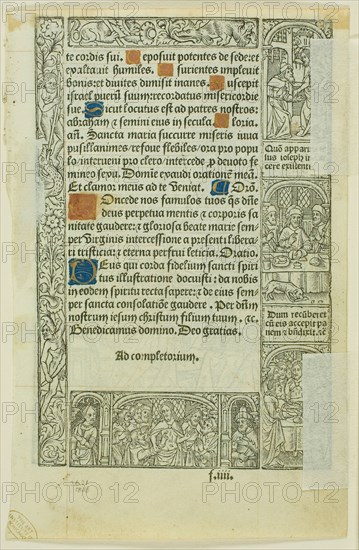 te cordis sui. Deposuit potentes de sede: et
exaltauit humiles. Esurientes impleuit
bonis: et diuites dimisit inanes. Suscepit
israel puerũ suum: recordatus misericordie
sue. Sicut locutus est ad patres nostros:
abraham et semini eius in secula. Gloria.
añ. Sancta maria succurre miseris iuua
pusillanimes: refoue flebiles: ora pro popu
lo: interueni pro clero: intercede p deuoto fe
mineo sexu. Domie exaudi orationem meã.
Et clamor meus ad te Veniat. Orõ.
Concede nos famulos tuos q̃s dñe
deus perpetua mentis et corporis sa
nitate gaudere: et gloriosa beate marie sem
per Virginis intercessione a presenti libera
ri tristicia: et eterna perfrui leticia. Oratio.
Deus qui corda fidelium sancti spiri
tus illustratione docuisti: da nobis
in eodem spiritu recta sapere: et de eius sem
per sancta consolatiõne gaudere. Per dñm
nostrum iesum christum filium tuum. et c.
Benedicamus domino. Deo gratias.
Ad completorium.
f.iiii.
Quõ appari
tus ioseph ii
cere exilenti
Dum recũberet
cũ eis accepit pa
nem et bñdixit. et c